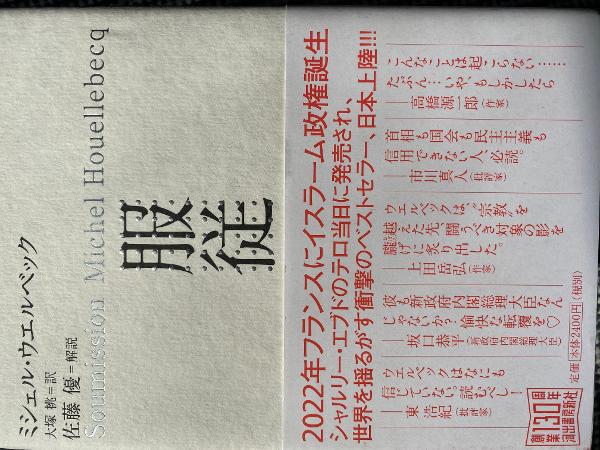 ミシェル・ウエルベック
大塚 桃=訳
佐藤 優=解説
Soumission Michel Houellebecq
服従
2022年フランスにイスラーム政権誕生
シャルリー・エブドのテロ当日に発売され、
世界を揺るがす衝撃のベストセラー、日本上陸!!!
こんなことは起こらない……
たぶん…いや、もしかしたら
――高橋源一郎(作家)
首相も国会も民主主義も
信用できない人、必読。
――市川真人(批評家)
ウエルベックは〝宗教〟を
越えた先、闘うべき対象の影を
朧げに炙り出した。
――上田岳弘(作家)
彼も新政府内閣総理大臣なん
じゃないか? 愉快な転覆を♡
――坂口恭平(新政府内閣総理大臣)
ウエルベックはなにも
信じていない。読むべし!
――東 浩紀(批評家)
定価 本体2400円(税別)
創業130周年
河出書房新社